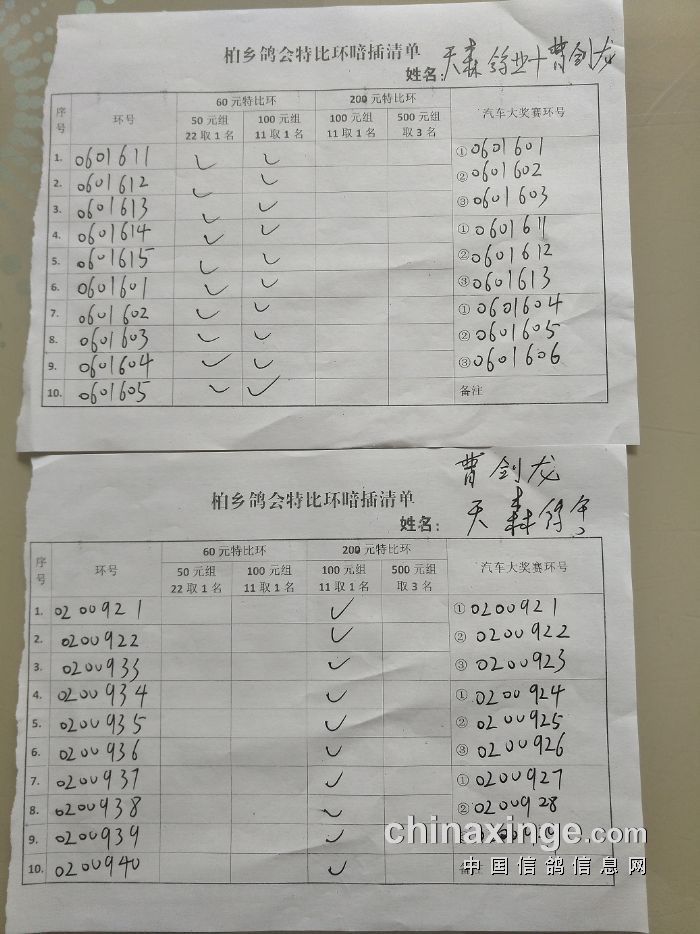 柏乡鸽会特比环暗插清单
姓名: 天森 业+曹剑龙
序号 环号 60元特比环 200元特比环 汽车大奖赛环号
50元组 100元组 100元组 500元组
22取1名 11取1名 11取1名 取3名
1. 0601611 ✓ ✓ ①0601601
2. 0601612 ✓ ✓ ②0601602
3. 0601613 ✓ ✓ ③0601603
4. 0601614 ✓ ✓ ①0601611
5. 0601615 ✓ ✓ ②0601612
6. 0601601 ✓ ✓ ③0601613
7. 0601602 ✓ ✓ ①0601604
8. 0601603 ✓ ✓ ②0601605
9. 0601604 ✓ ✓ ③0601606
10. 0601605 ✓ ✓ 备注
曹剑龙
柏乡鸽会特比环暗插清单
姓名: 天森
序号 环号 60元特比环 200元特比环 汽车大奖赛环号
50元组 100元组 100元组 500元组
22取1名 11取1名 11取1名 取3名
1. 0200921 ✓ ①0200921
2. 0200922 ✓ ②0200922
3. 0200933 ✓ ③0200923
4. 0200934 ✓ ①0200924
5. 0200935 ✓ ②0200925
6. 0200936 ✓ ③0200926
7. 0200937 ✓ ①0200927
8. 0200938 ✓ ②0200928
9. 0200939 ✓
10. 0200940 ✓ 备注
chinaxinge.com
中国信鸽信息网